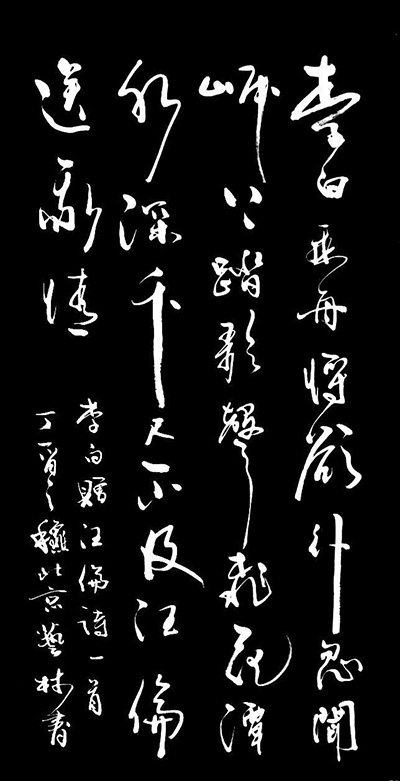 李白乘舟將欲行忽聞
岸上踏歌聲桃花潭
水深千尺不及汪倫
送我情
李白贈汪倫詩一首
丁酉之穐北京藝林書